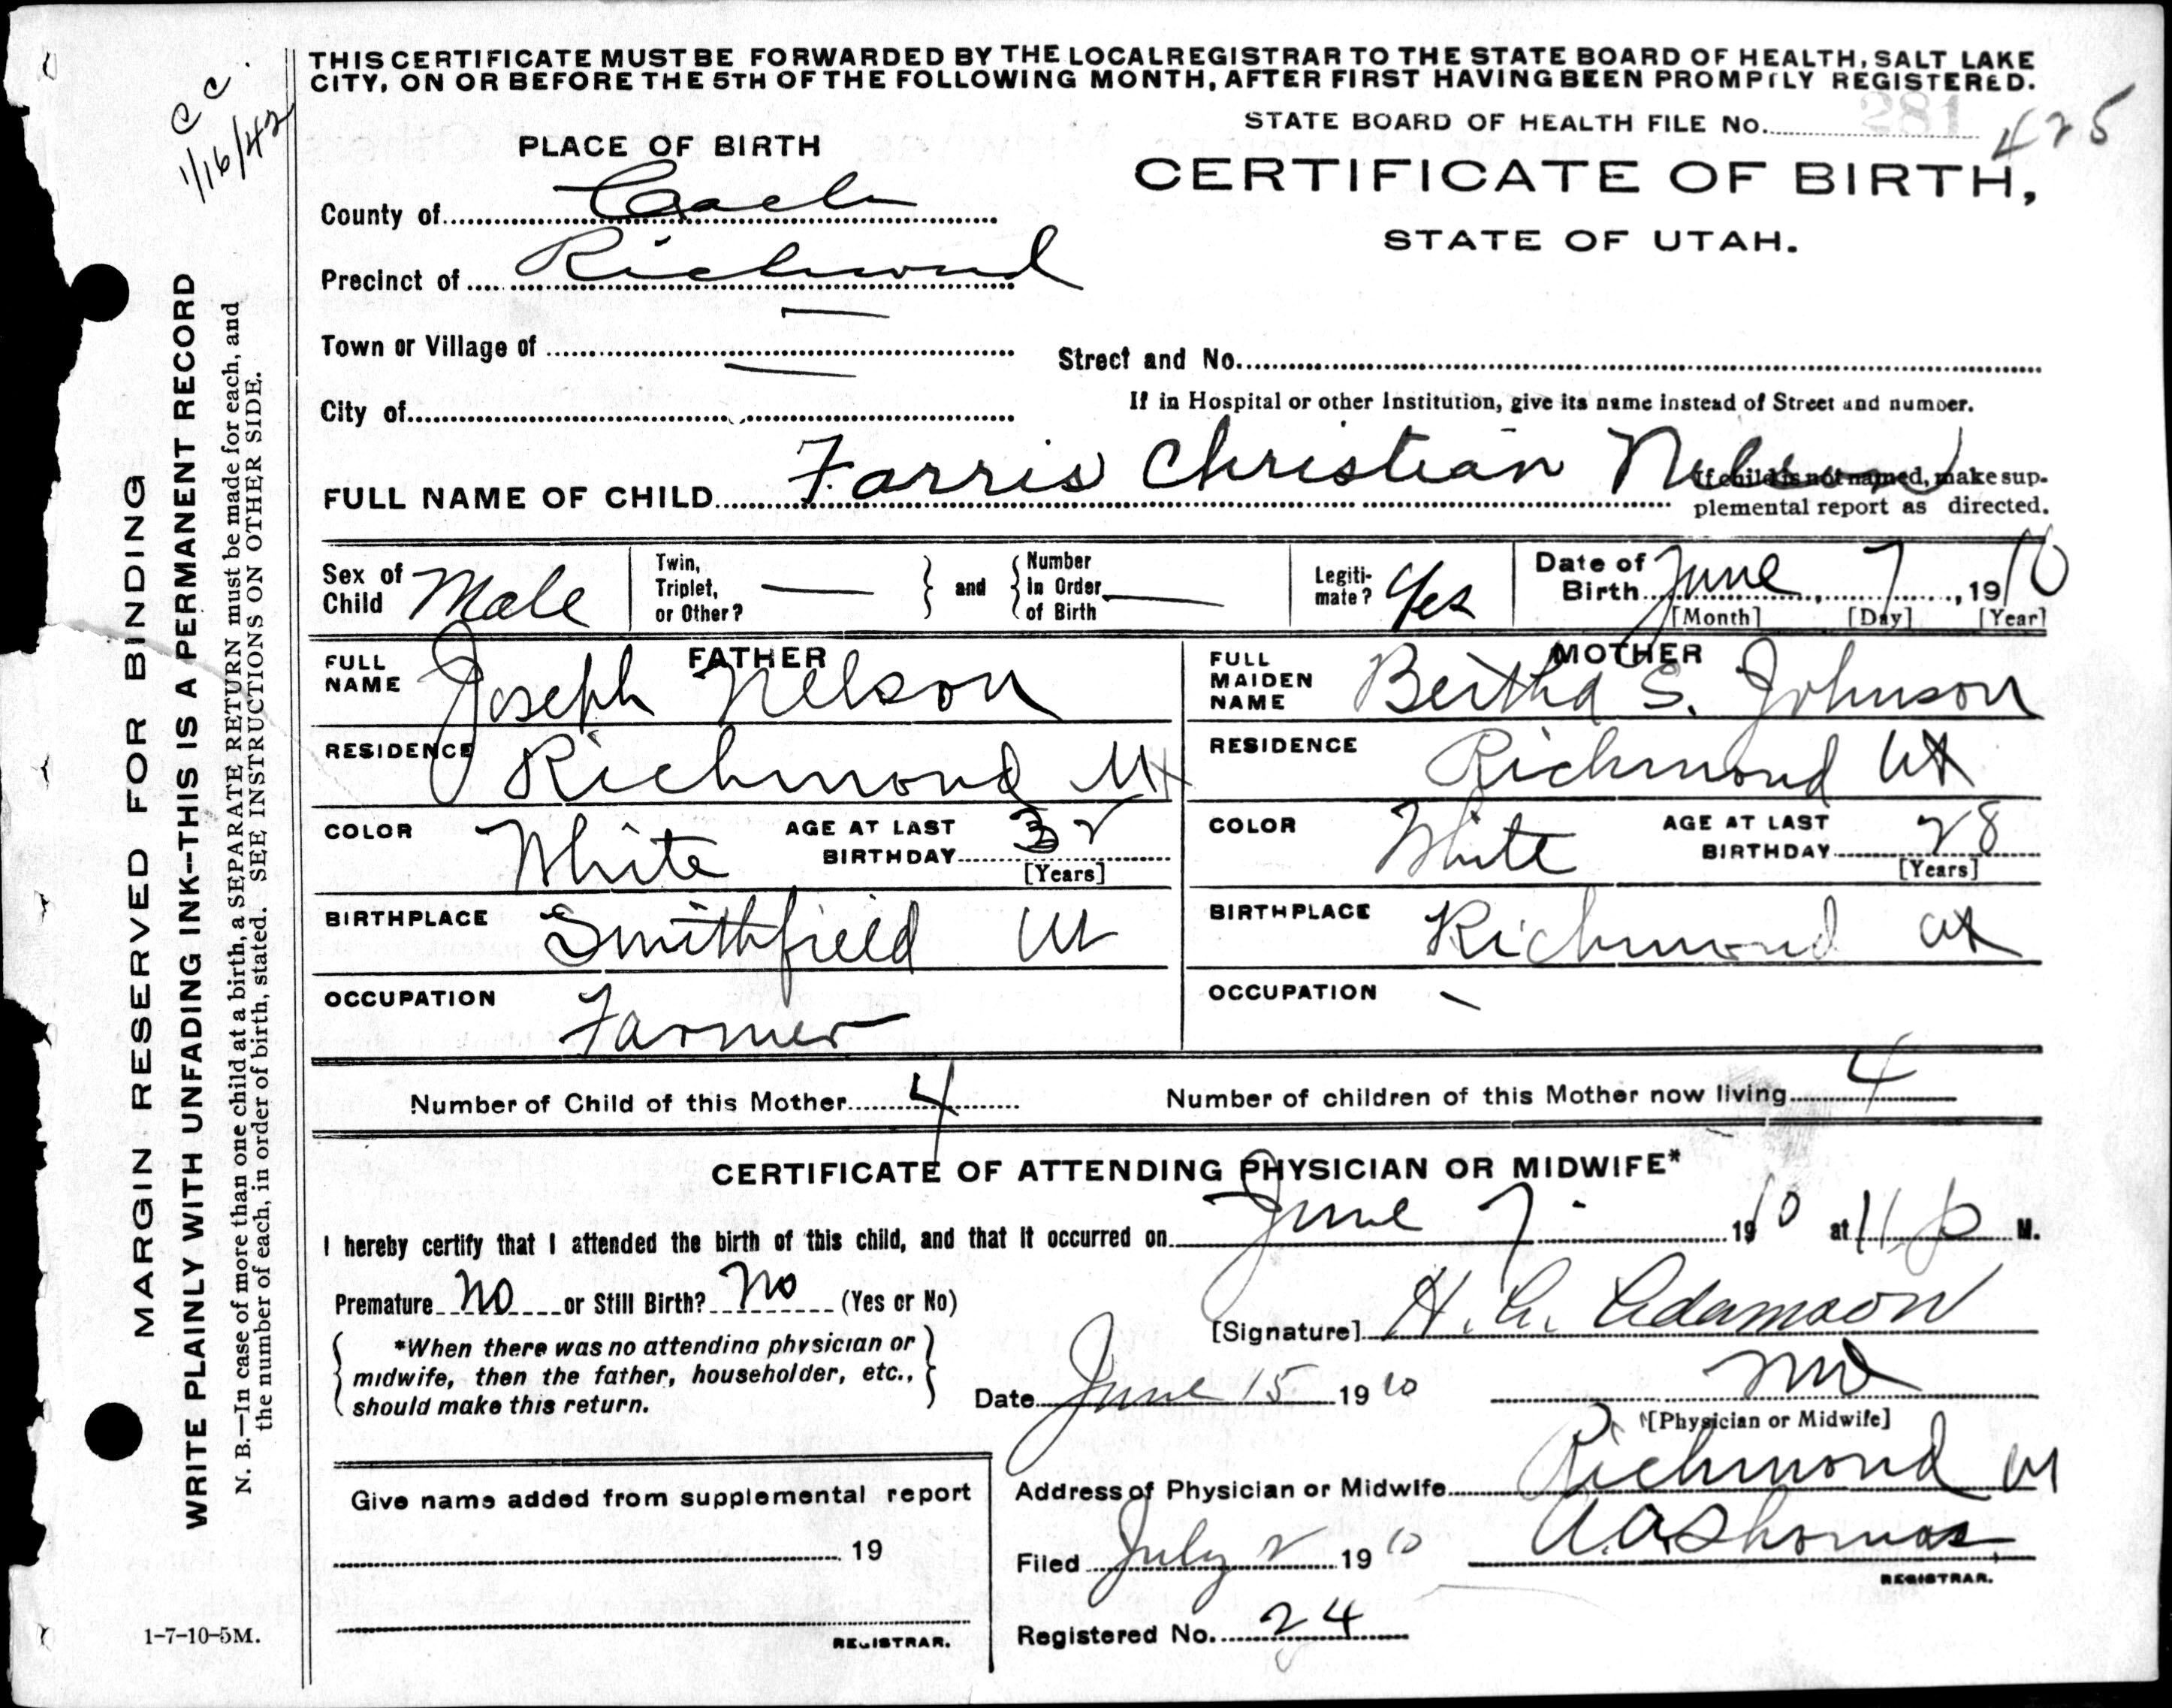 THIS CERTIFICATE MUST BE FORWARDED BY THE LOCAL REGISTRAR TO THE STATE BOARD OF HEALTH, SALT LAKE
CITY, ON OR BEFORE THE 5TH OF THE FOLLOWING MONTH, AFTER FIRST HAVING BEEN PROMPTLY REGISTERED.
C C.
1/16/42
STATE BOARD OF HEALTH FILE No. 281 425
PLACE OF BIRTH
CERTIFICATE OF BIRTH,
STATE OF UTAH.
County of Cache
Precinct of Richmond
Town or Village of —
Street and No.
City of —
If in Hospital or other Institution, give its name instead of Street and number.
FULL NAME OF CHILD Farris Christian Nelson
If child is not named, make sup-
plemental report as directed.
Sex of Child Male
Twin, Triplet, or Other? — and Number in Order of Birth —
Legiti-mate? Yes
Date of Birth June 7, 1910
[Month] [Day] [Year]
FATHER
FULL NAME Joseph Nelson
RESIDENCE Richmond Ut
COLOR White AGE AT LAST BIRTHDAY 32
[Years]
BIRTHPLACE Smithfield Ut
OCCUPATION Farmer
MOTHER
FULL MAIDEN NAME Bertha S. Johnson
RESIDENCE Richmond Ut
COLOR White AGE AT LAST BIRTHDAY 28
[Years]
BIRTHPLACE Richmond Ut
OCCUPATION –
Number of Child of this Mother 4 Number of children of this Mother now living 4
CERTIFICATE OF ATTENDING PHYSICIAN OR MIDWIFE*
I hereby certify that I attended the birth of this child, and that it occurred on June 7 - 1910 at 11 p M.
Premature No or Still Birth? No (Yes or No)
*When there was no attending physician or
midwife, then the father, householder, etc.,
should make this return.
[Signature] H. G. Adamson
Date June 15 1910 MD
[Physician or Midwife]
Give name added from supplemental report
19
REGISTRAR.
Address of Physician or Midwife Richmond Ut
Filed July 2 1910 Thomas
REGISTRAR.
Registered No. 24
MARGIN RESERVED FOR BINDING
WRITE PLAINLY WITH UNFADING INK--THIS IS A PERMANENT RECORD
N. B.—In case of more than one child at a birth, a SEPARATE RETURN must be made for each, and
the number of each, in order of birth, stated. SEE INSTRUCTIONS ON OTHER SIDE.
1-7-10-5M.